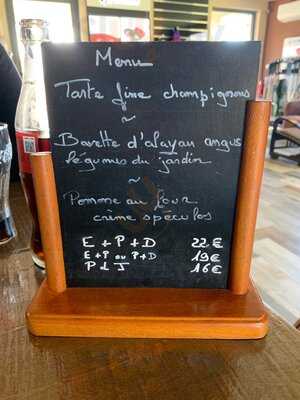 Menu
Tarte fine champignons
~
Bavette d'aloyau angus
légumes du jardin
~
Pomme au four
crème spéculos
E + P + D 22€
E + P ou P + D 19€
P d J 16€